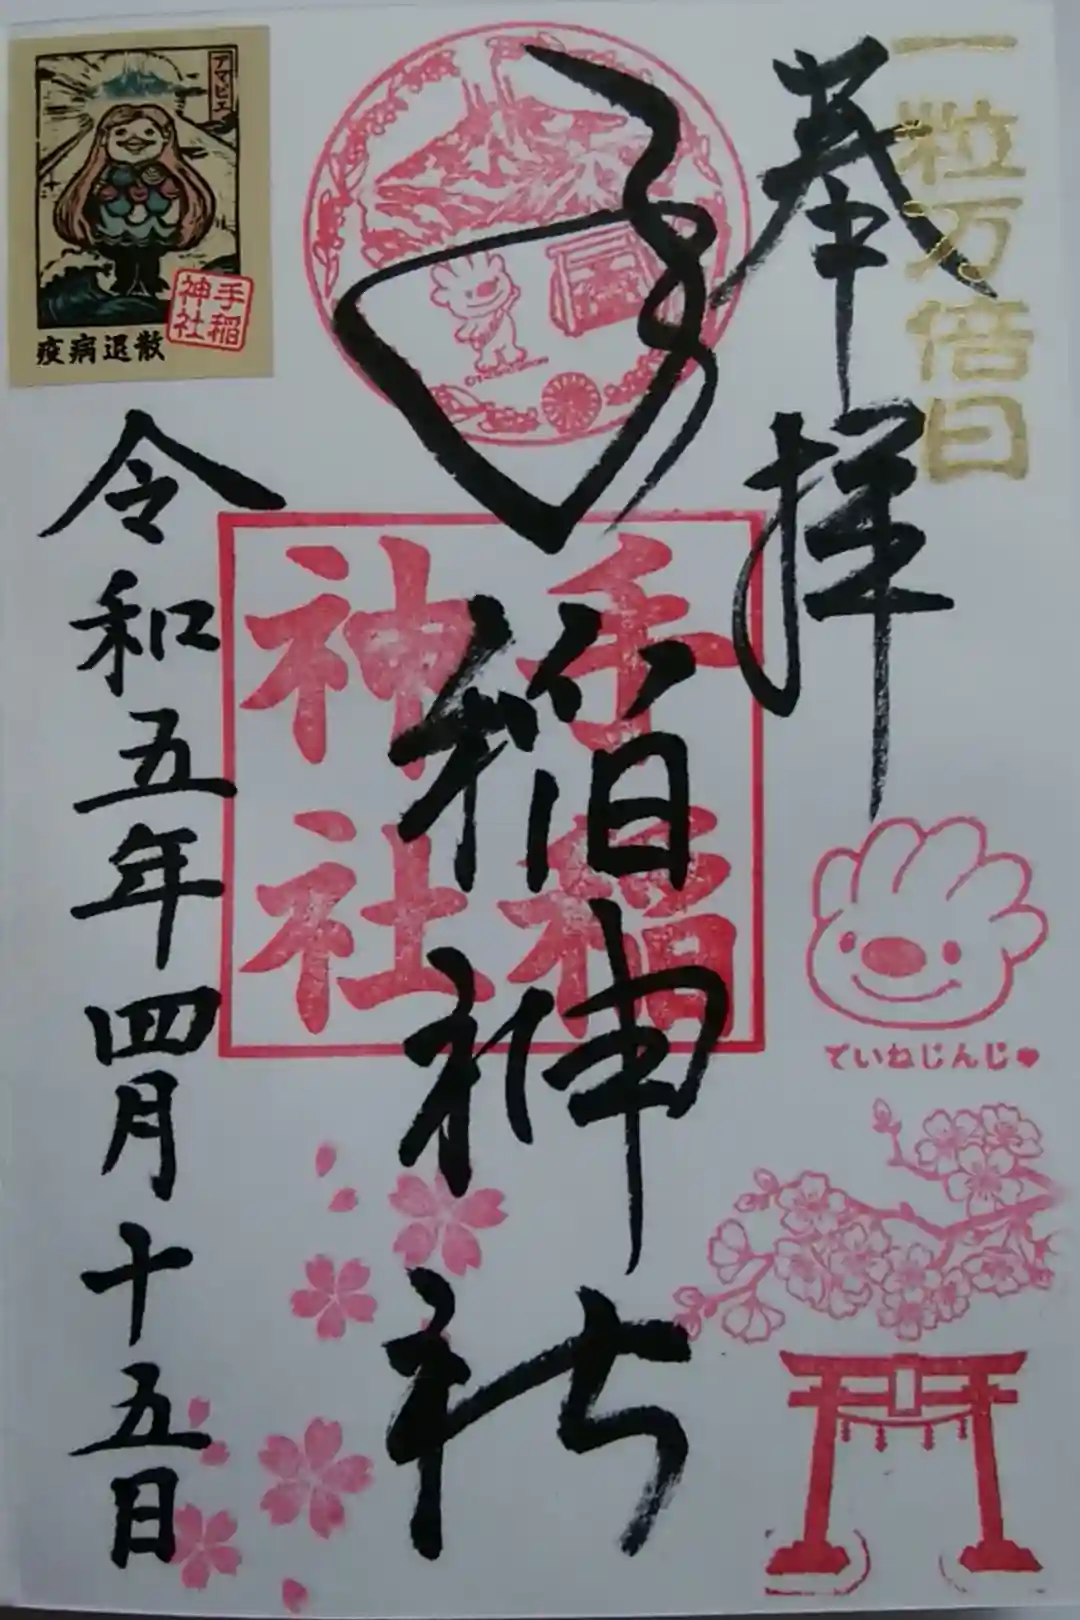 一粒万倍日
奉拝
手稲神社
手稲
神社
ていねじんじ♥
令和五年四月十五日
アマビエ
手稲
神社
疫病退散